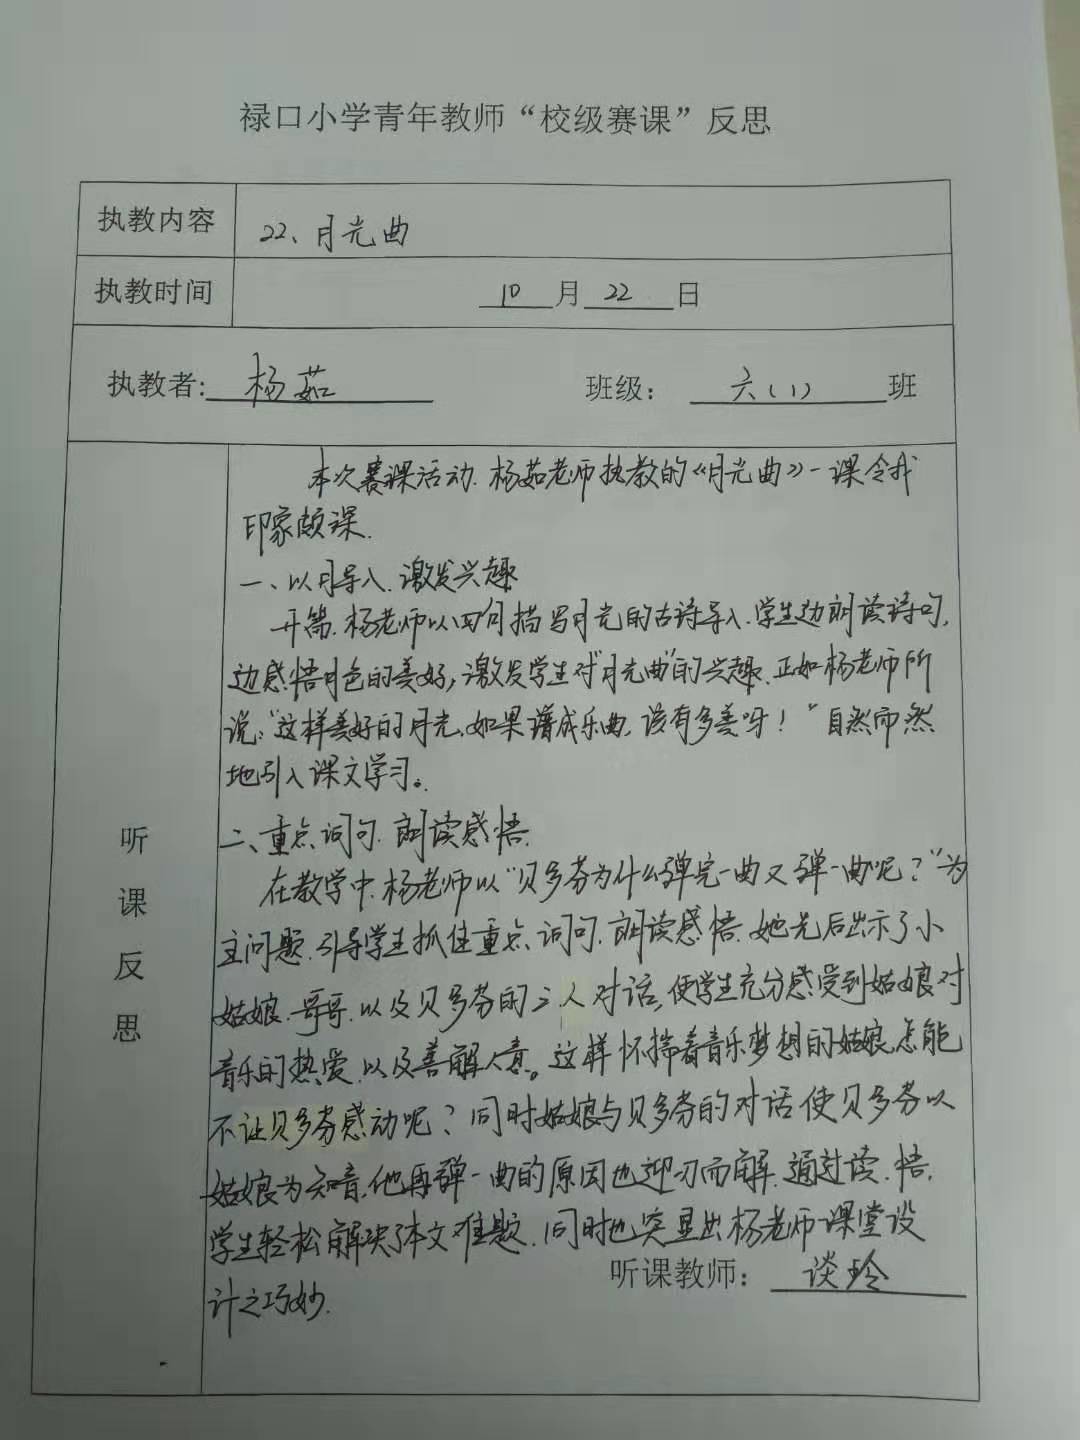 禄口小学青年教师“校级赛课”反思
执教内容 22、月光曲
执教时间 10 月 22 日
执教者: 杨茹 班级: 六(1) 班
听课反思
本次赛课活动.杨茹老师执教的《月光曲》一课令我
印象颇深.
一、以月导入.激发兴趣
开篇.杨老师以四句描写月光的古诗导入.学生边朗读诗句,
边感悟月色的美好,激发学生对“月光曲”的兴趣.正如杨老师所
说:“这样美好的月光,如果谱成乐曲,该有多美呀！”自然而然
地引入课文学习。
二、重点词句.朗读感悟.
在教学中.杨老师以“贝多芬为什么弹完一曲又弹一曲呢？”为
主问题.引导学生抓住重点词句.朗读感悟.她先后出示了小
姑娘.哥哥.以及贝多芬的三人对话,使学生充分感受到姑娘对
音乐的热爱.以及善解人意。这样怀揣着音乐梦想的姑娘怎能
不让贝多芬感动呢？同时姑娘与贝多芬的对话使贝多芬以
姑娘为知音.他再弹一曲的原因也迎刃而解.通过读.悟.
学生轻松解决了本文难题.同时也突显出杨老师课堂设
计之巧妙.
听课教师: 谈玲